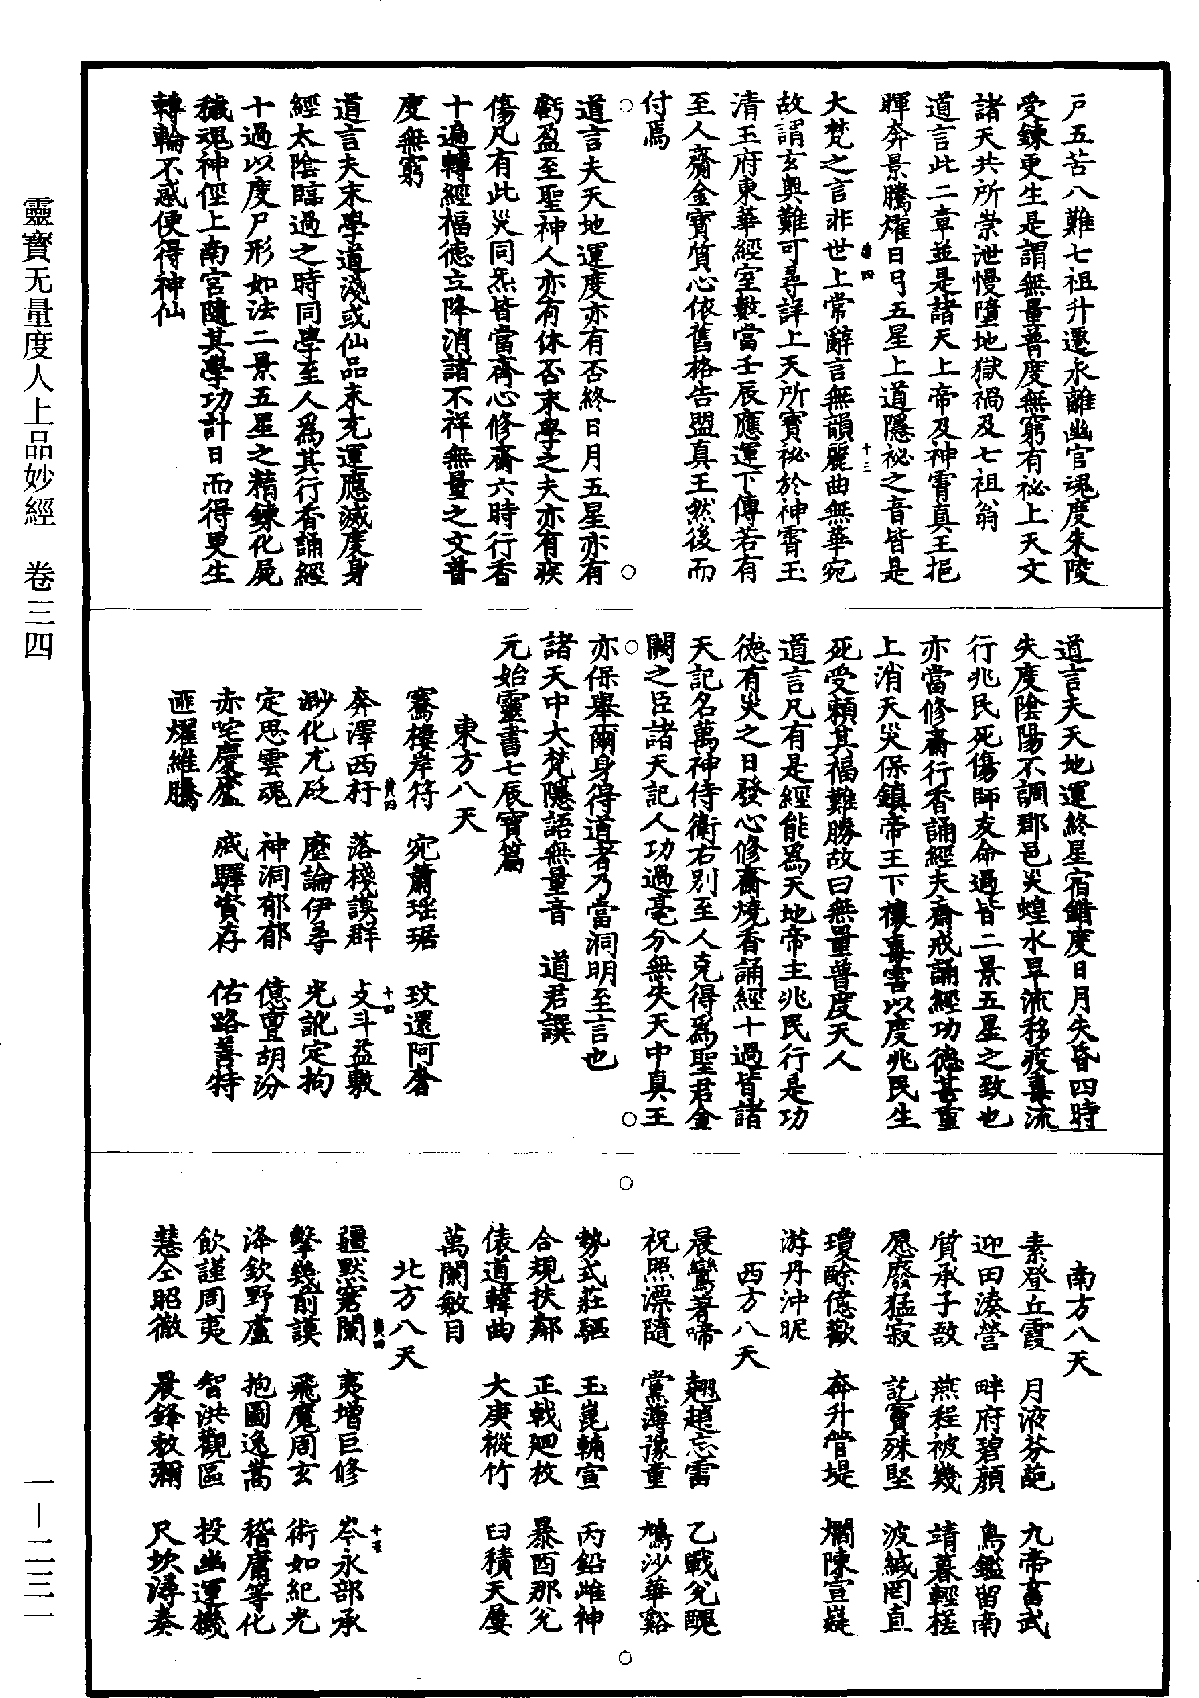 戶五苦八難七祖升遷永離幽官魂度朱陵
受鍊更生是謂無量普度無窮有祕上天文
諸天共所崇泄慢墮地獄禍及七祖翁
道言此二章並是諸天上帝及神霄真王挹
暉奔景騰燿日月五星上道隱祕之音皆是
大梵之言非世上常辭言無韻麗曲無華宛
故謂玄奥難可尋詳上天所寶祕於神霄玉
清王府東華經室數當壬辰應運下傳若有
至人齎金寶質心依舊格告盟真王然後而
付焉
道言夫天地運度亦有否終日月五星亦有
虧盈至聖神人亦有休否末學之夫亦有疾
傷凡有此災同炁皆當齊心修齋六時行香
十遍轉經福德立降消諸不祥無量之文普
度無窮
道言夫末學道淺或仙品未充運應滅度身
經太陰臨過之時同學至人為其行香誦經
十過以度尸形如法二景五星之精鍊化屍
穢魂神徑上南宮隨其學功計日而得更生
轉輪不惑便得神仙
道言夫天地運終星宿錯度日月失昏四時
失度陰陽不調郡邑災蝗水旱流移疫毒流
行兆民死傷師友命過皆二景五星之致也
亦當修齋行香誦經夫齋戒誦經功德甚重
上消天災保鎮帝王下禳毒害以度兆民生
死受賴其福難勝故曰無量普度天人
道言凡有是經能為天地帝主兆民行是功
德有災之日發心修齋燒香誦經十過皆諸
天記名萬神侍衛右別至人克得為聖君金
闕之臣諸天記人功過毫分無失天中真王
亦保舉爾身得道者乃當洞明至言也
諸天中大梵隱語無量音　道君譔
元始靈書七辰寶篇
東方八天
騫棲岸符　宛蕭瑤琚　玟還阿奢
奔澤西籽　落棧謨群　攴斗益敷
渺化尤敃　麼論伊尋　光訛定拘
定思雲魂　神洞郁郁　億亶胡汾
赤咤慶嵐　戚驛資存　佑路善特
匪燿維騰
南方八天
素登丘霞　月液芬葩　九帝言武
迎田湊營　畔府碧顔　鳥鑑留南
質承子敖　燕程被幾　靖暮輕槎
愿廢猛寂　訖寶殊堅　波緘罔直
瓊醶億歡　奔升管堤　爓陳宣嶷
游丹沖昵
西方八天
晨鸞著啼　翹趙忘雷　乙戰兊醜
祝照漂隨　黨薄豫童　鳩沙華谿
勢式莊驅　玉崑輔宣　丙鉛雌神
合規扶鄰　正戟廻枚　暴酉那兊
俵道韓曲　大庚樅竹　臼積天廔
萬闌敏目
北方八天
疆默窮闌　夷增巨修　岑永部承
擊幾前謨　飛魔周玄　術如紀光
洚欽野盧　抱圖逸嵩　稽庸等化
飲謹周夷　智洪觀區　投幽運機
慧仝昭徹　晨鋒敕彌　尺坎潯奏
靈寶无量度人上品妙經　卷三四
一—二三一